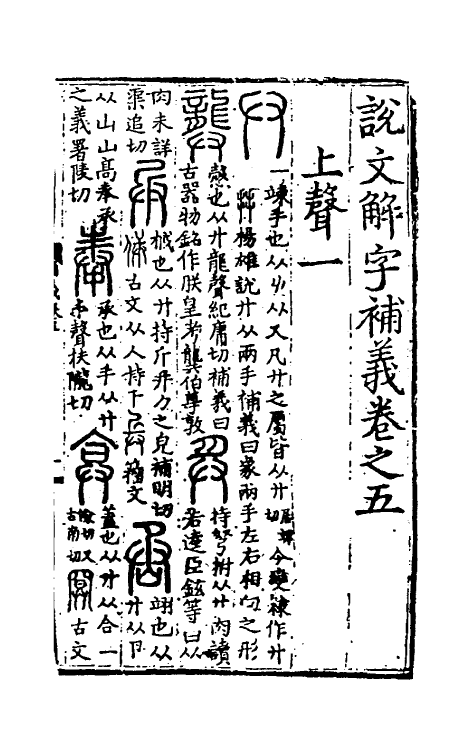 說文解字補義卷之五
上聲一
竦手也从𠂇从又凡廾之屬皆从廾居竦切今變隸作廾
楊雄說廾从兩手補義曰象兩手左右相向之形
慤也从廾龍聲紀庸切補義曰
古器物銘作朕皇考龔伯尊敦
持弩拊从廾肉讀
若逵臣鉉等曰从
肉未詳
渠追切
械也从廾持斤并力之皃補明切
古文从人持干 籀文
翊也从
廾从卪
从山山高奉承
之義署陵切
承也从手从廾
丰聲扶隴切
蓋也从廾从合一
儉切又
古南切
古文